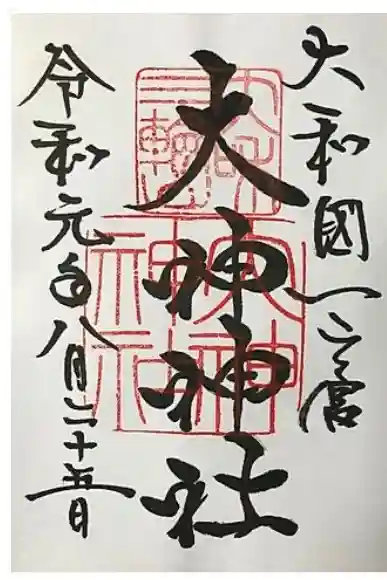 大和國一之宮
大神神社
令和元年八月二十五日
大神
神社